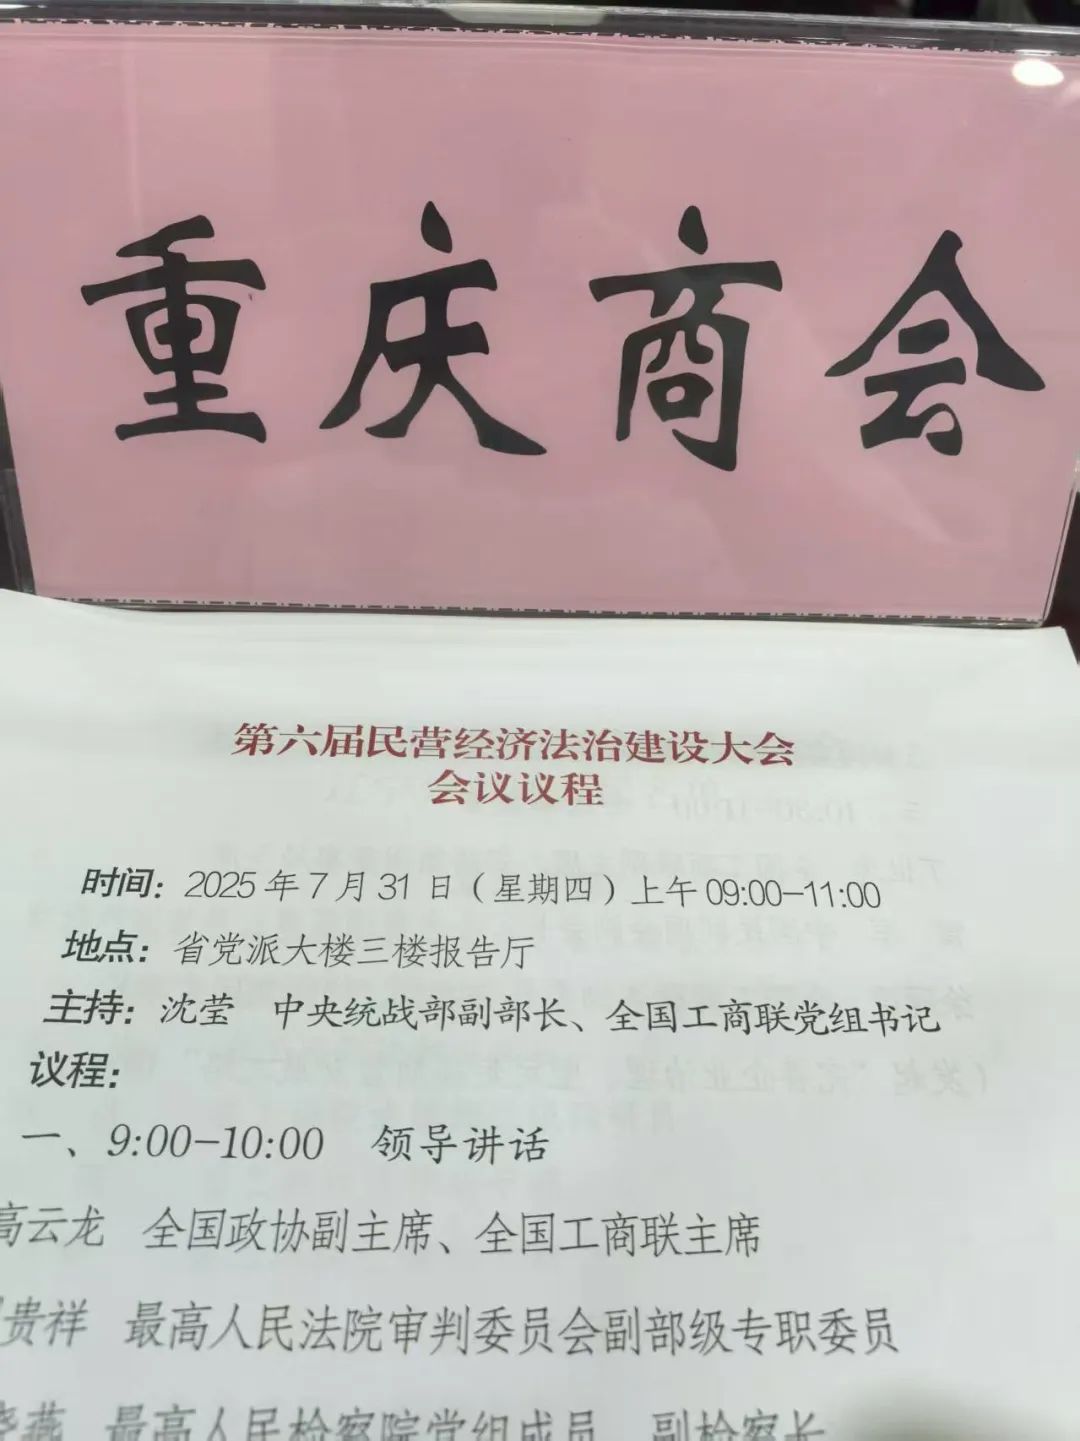 重庆商会
第六届民营经济法治建设大会
会议议程
时间：2025年7月31日（星期四）上午09:00-11:00
地点：省党派大楼三楼报告厅
主持：沈莹 中央统战部副部长、全国工商联党组书记
议程：
一、9:00-10:00 领导讲话
高云龙 全国政协副主席、全国工商联主席
贵祥 最高人民法院审判委员会副部级专职委员
晓燕 最高人民检察院党组成员、副检察长